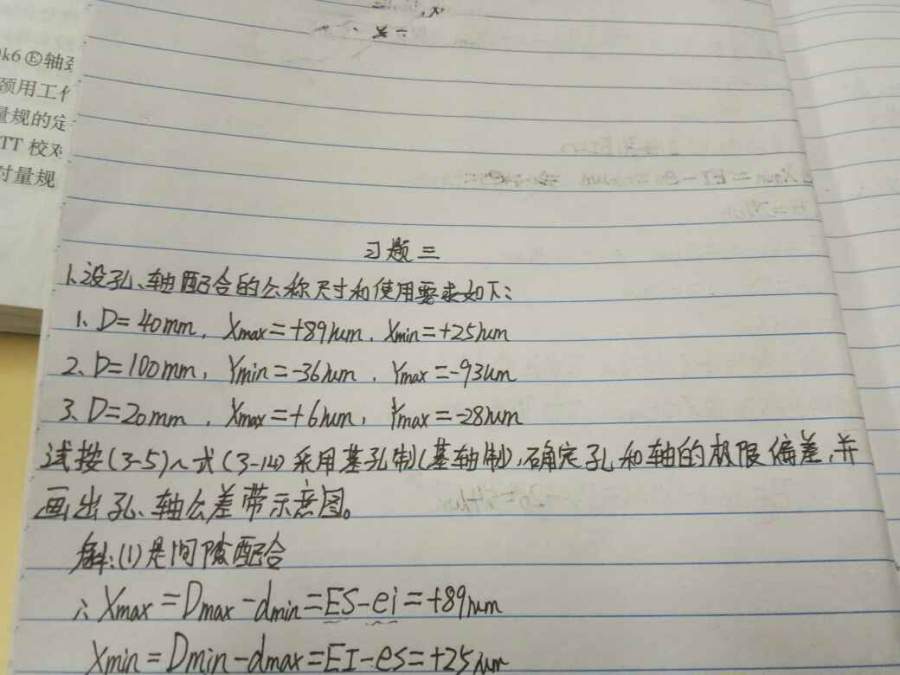 k6Ⓔ轴颈
颈用工作
量规的定
TT 校对
对量规
习题三
1.设孔、轴配合的公称尺寸和使用要求如下:
1、D=40mm, Xmax=+89μm, Xmin=+25μm
2、D=100mm, Ymin=-36μm, Ymax=-93μm
3、D=20mm, Xmax=+6μm, Ymax=-28μm
试按(3-5)~式(3-14)采用基孔制(基轴制),确定孔和轴的极限偏差,并
画出孔、轴公差带示意图。
解:(1)是间隙配合
∴ Xmax=Dmax-dmin=ES-ei=+89μm
Xmin=Dmin-dmax=EI-es=+25μm